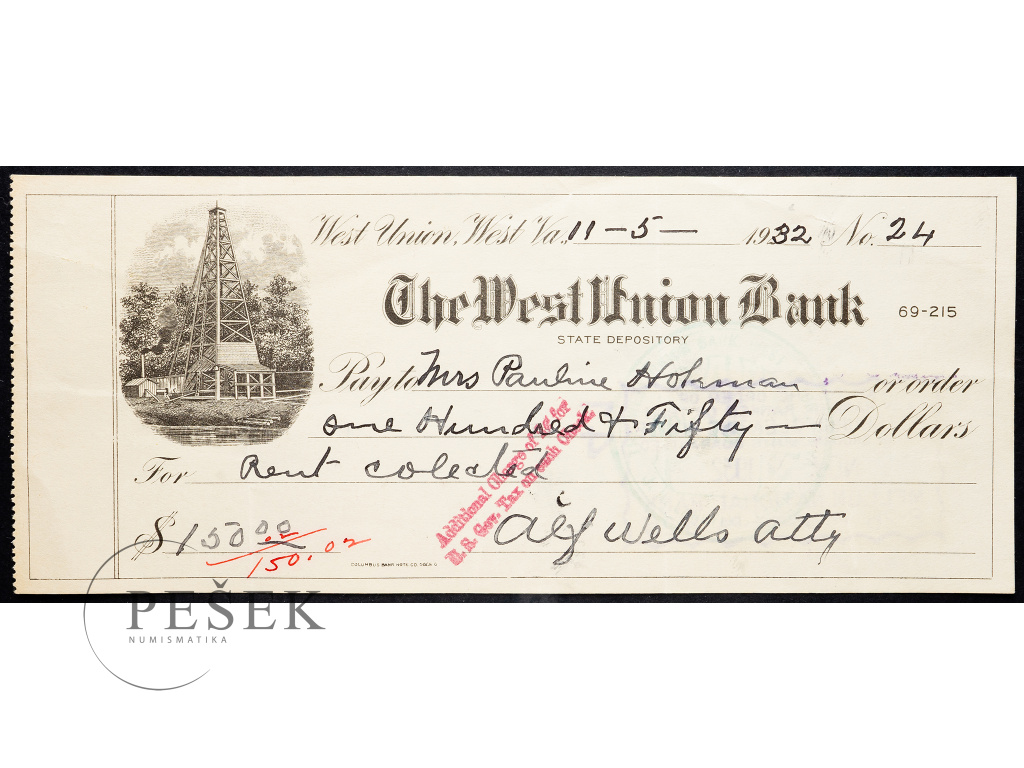 West Union, West Va., 11 - 5 - 1932 No. 24
The West Union Bank
69-215
STATE DEPOSITORY
Pay to Mrs Pauline Holeman or order
one Hundred & Fifty — Dollars
For Rent colected
Additional Charge of 2¢ for
U. S. Gov. Tax on each Check.
$ 150 00
.02
150.02
Alf Wells atty
COLUMBUS BANK NOTE CO.
PEŠEK
NUMISMATIKA